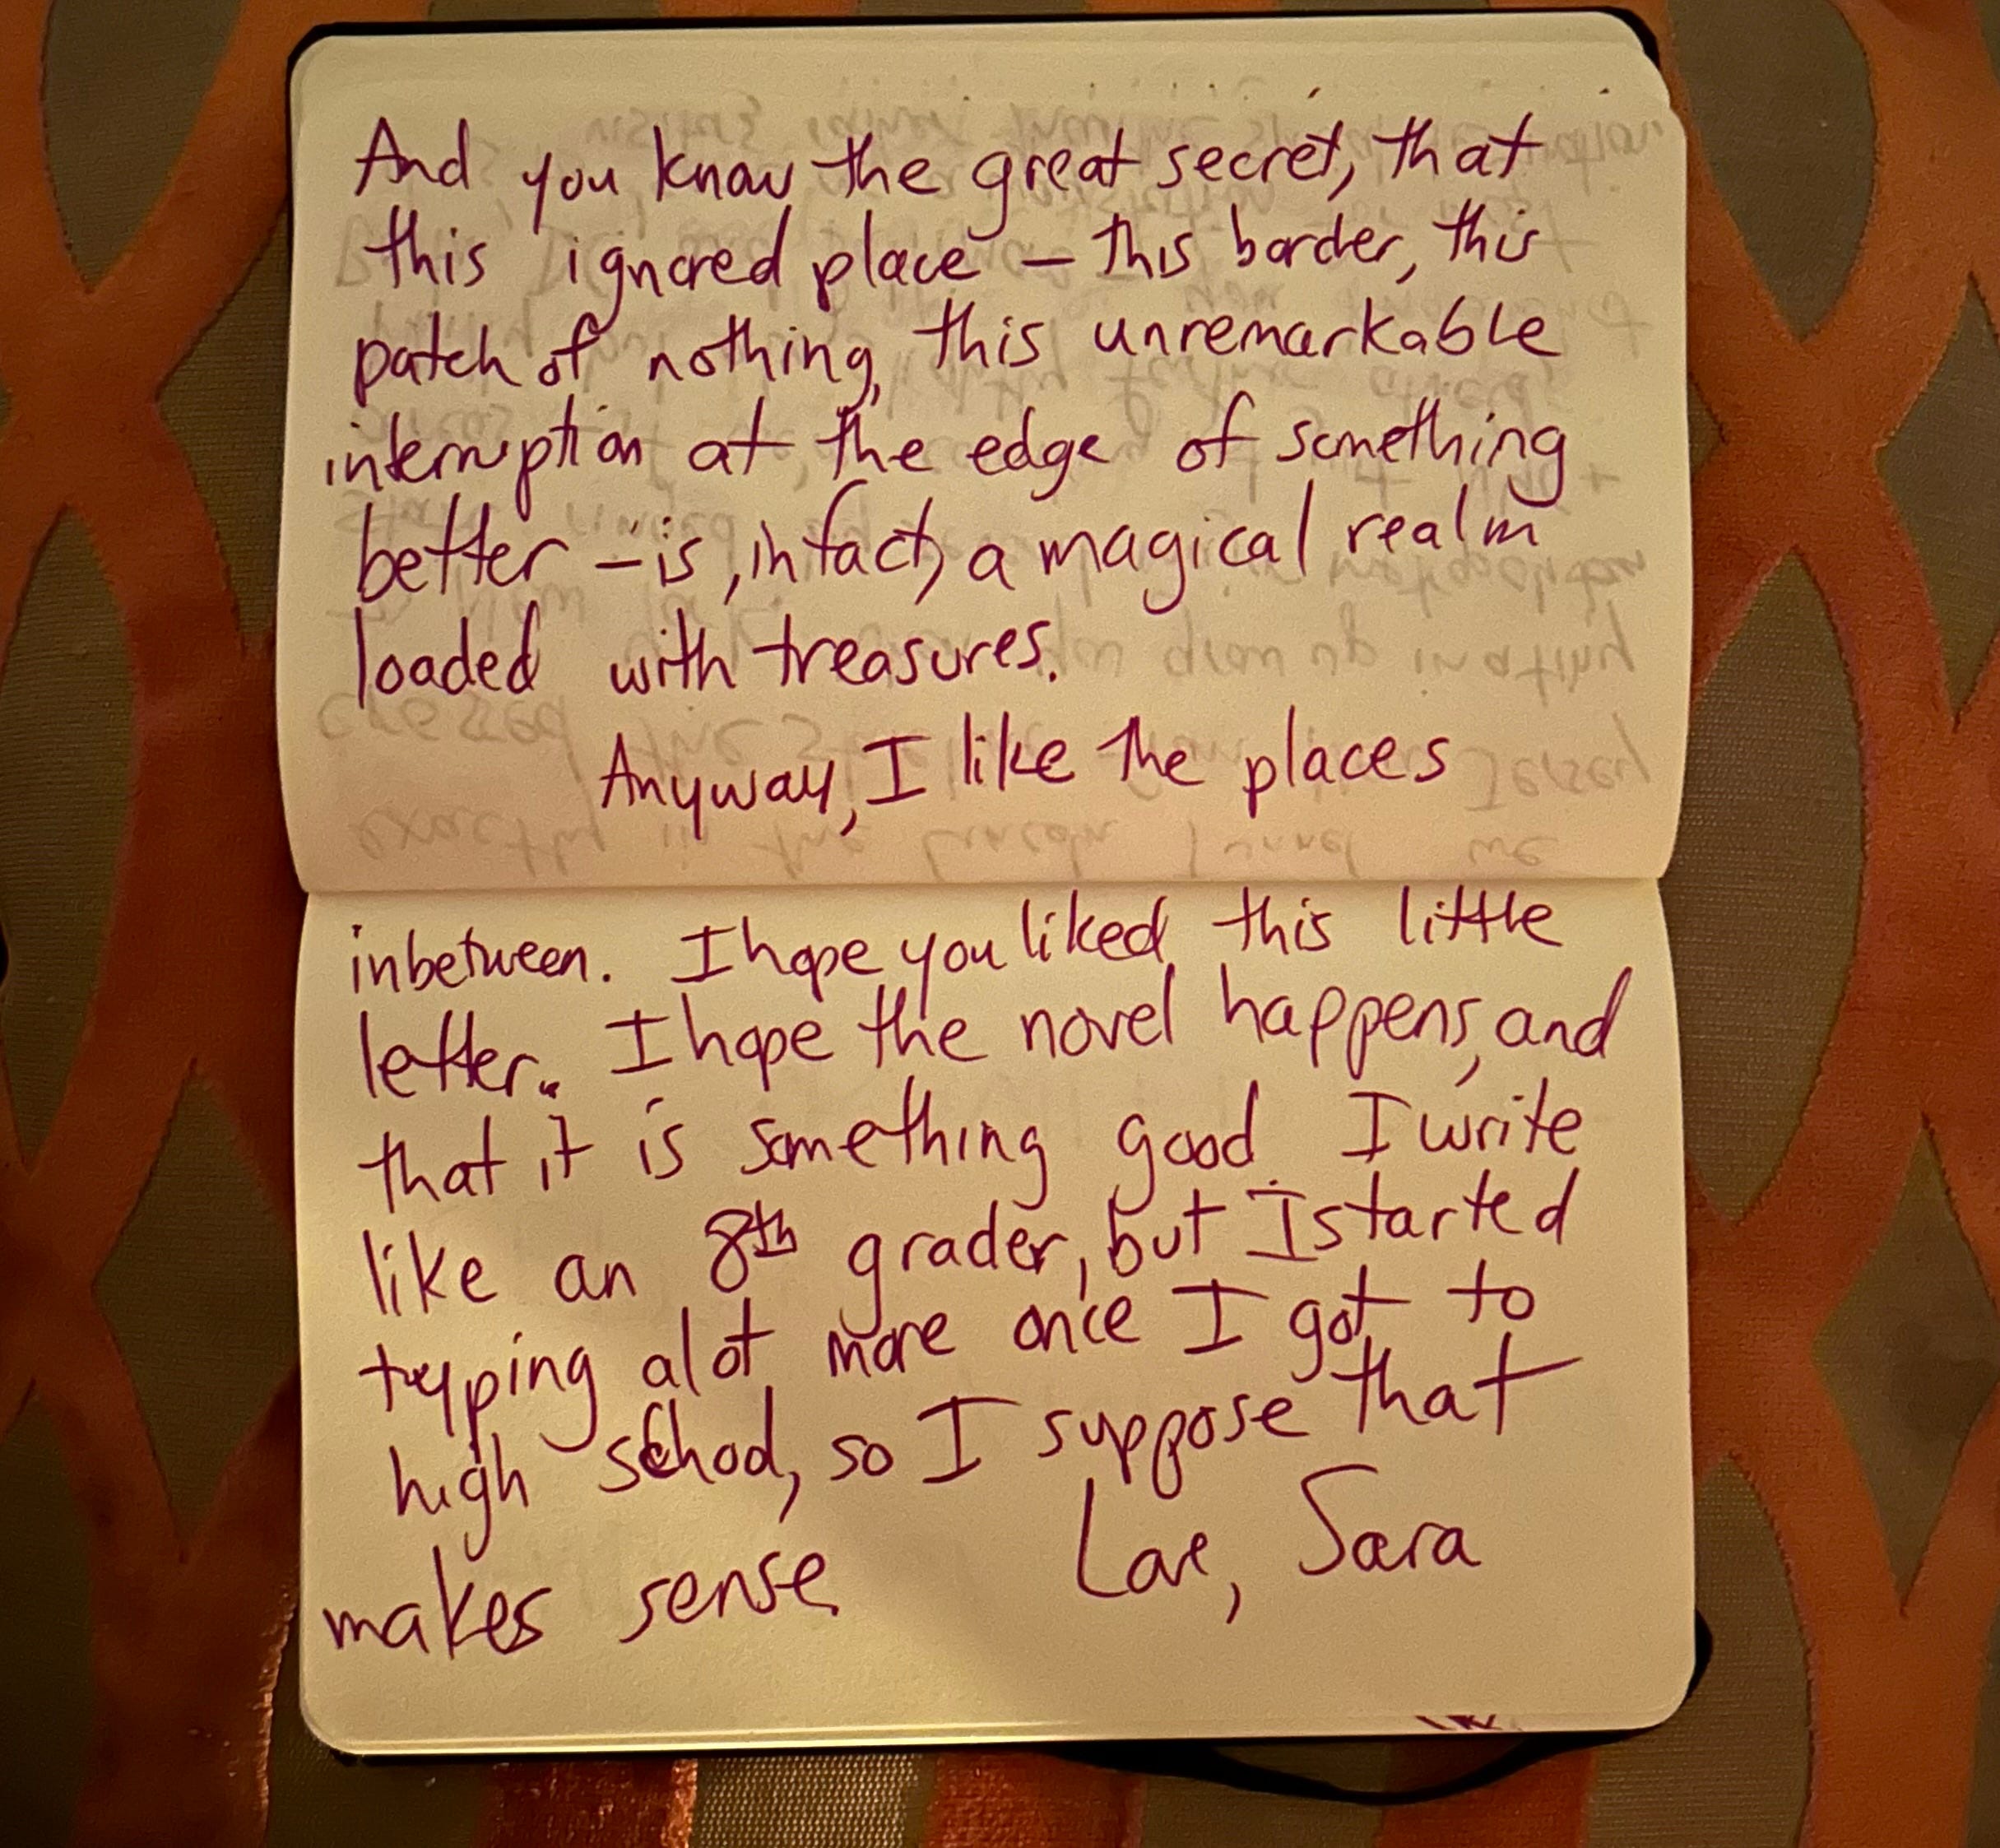 And you know the great secret, that
this ignored place – this border, this
patch of nothing, this unremarkable
interruption at the edge of something
better – is, in fact, a magical realm
loaded with treasures.
Anyway, I like the places
inbetween. I hope you liked this little
letter. I hope the novel happens, and
that it is something good. I write
like an 8th grader, but I started
typing alot more once I got to
high school, so I suppose that
makes sense.
Love, Sara